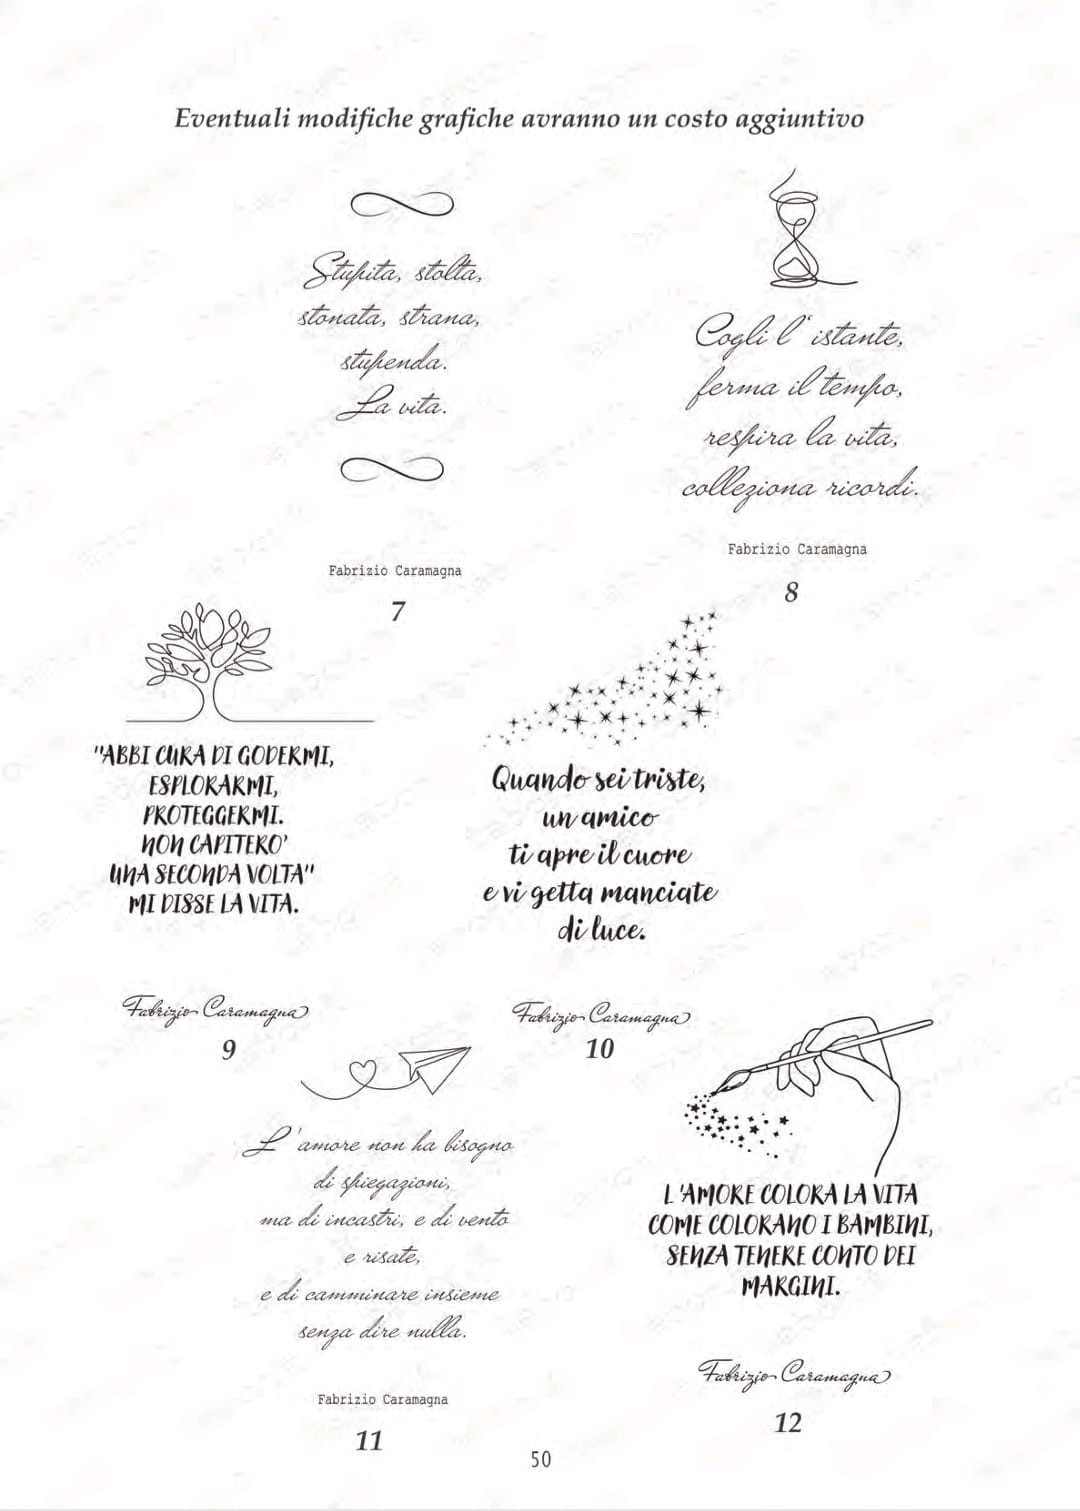 Eventuali modifiche grafiche avranno un costo aggiuntivo
Stupita, stolta,
stonata, strana,
stupenda.
La vita.
Fabrizio Caramagna
7
Cogli l' istante,
ferma il tempo,
respira la vita,
colleziona ricordi.
Fabrizio Caramagna
8
"ABBI CURA DI GODERMI,
ESPLORARMI,
PROTEGGERMI.
NON CAPITERO'
UNA SECONDA VOLTA"
MI DISSE LA VITA.
Fabrizio Caramagna
9
Quando sei triste,
un amico
ti apre il cuore
e vi getta manciate
di luce.
Fabrizio Caramagna
10
L'amore non ha bisogno
di spiegazioni,
ma di incastri, e di vento
e risate,
e di camminare insieme
senza dire nulla.
Fabrizio Caramagna
11
L'AMORE COLORA LA VITA
COME COLORANO I BAMBINI,
SENZA TENERE CONTO DEI
MARGINI.
Fabrizio Caramagna
12
50